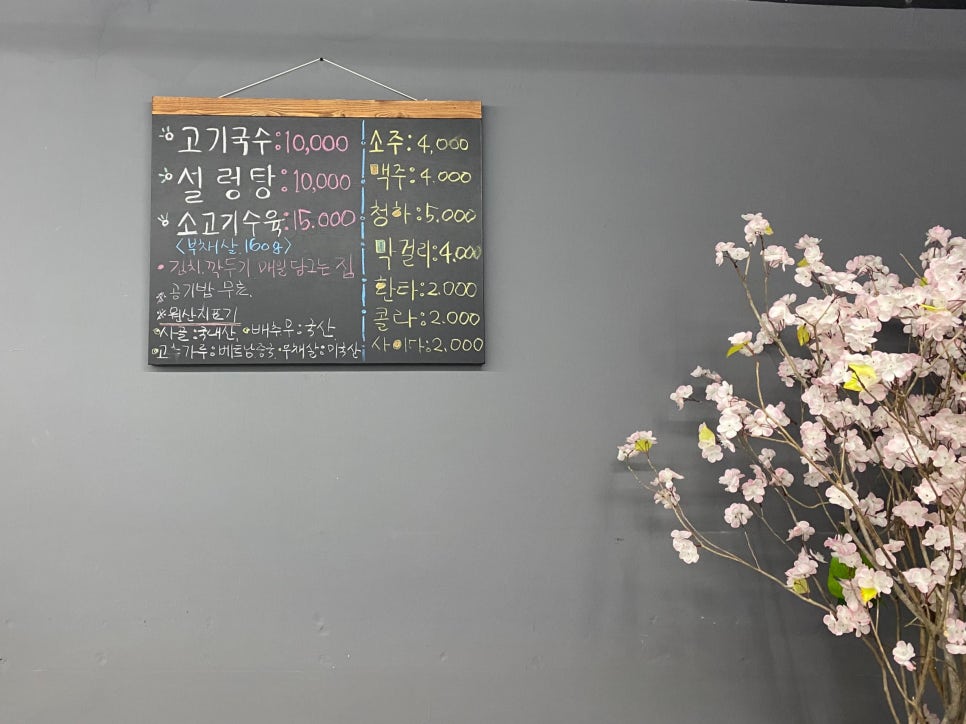 고기국수:10,000
설렁탕:10,000
소고기수육:15.000
<부채살.160g>
•김치.깍두기 매일 담그는 집
※공기밥 무료.
※원산지표기
•사골:국내산, •배추무:국산
•고추가루:베트남중국•부채살:미국산
소주:4,000
맥주:4.000
청하:5.000
막걸리:4.000
환타:2.000
콜라:2.000
사이다:2.000